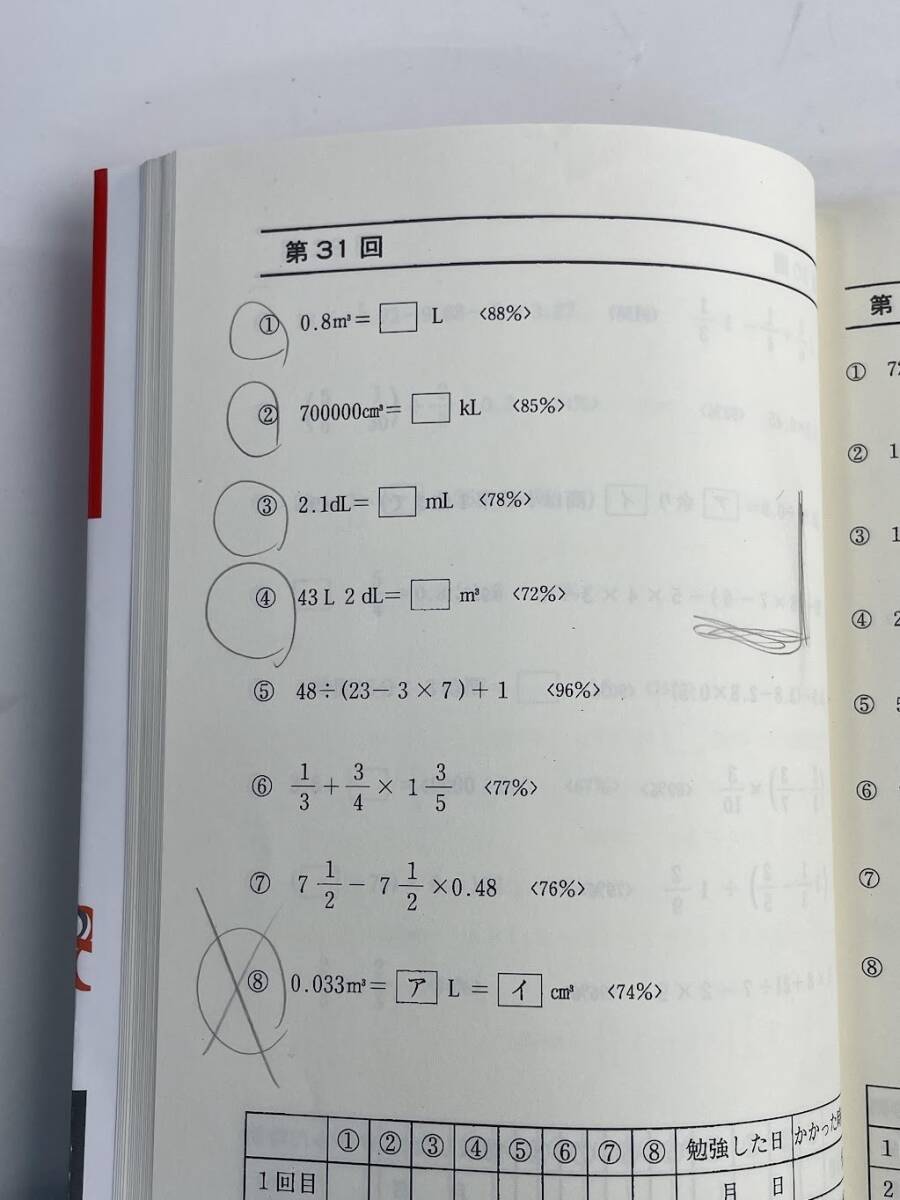 第31回
① 0.8m³=□ L 〈88%〉
② 700000cm³=□ kL 〈85%〉
③ 2.1dL=□ mL 〈78%〉
④ 43L 2dL=□ m³ 〈72%〉
⑤ 48÷(23-3×7)+1 〈96%〉
⑥ 1/3+3/4×1 3/5 〈77%〉
⑦ 7 1/2-7 1/2×0.48 〈76%〉
⑧ 0.033m³=ア L=イ cm³ 〈74%〉
① ② ③ ④ ⑤ ⑥ ⑦ ⑧ 勉強した日 かかった
1回目 月 日
第
① 72
② 1
③ 1
④ 2
⑤ 5
⑥
⑦
⑧
1
2